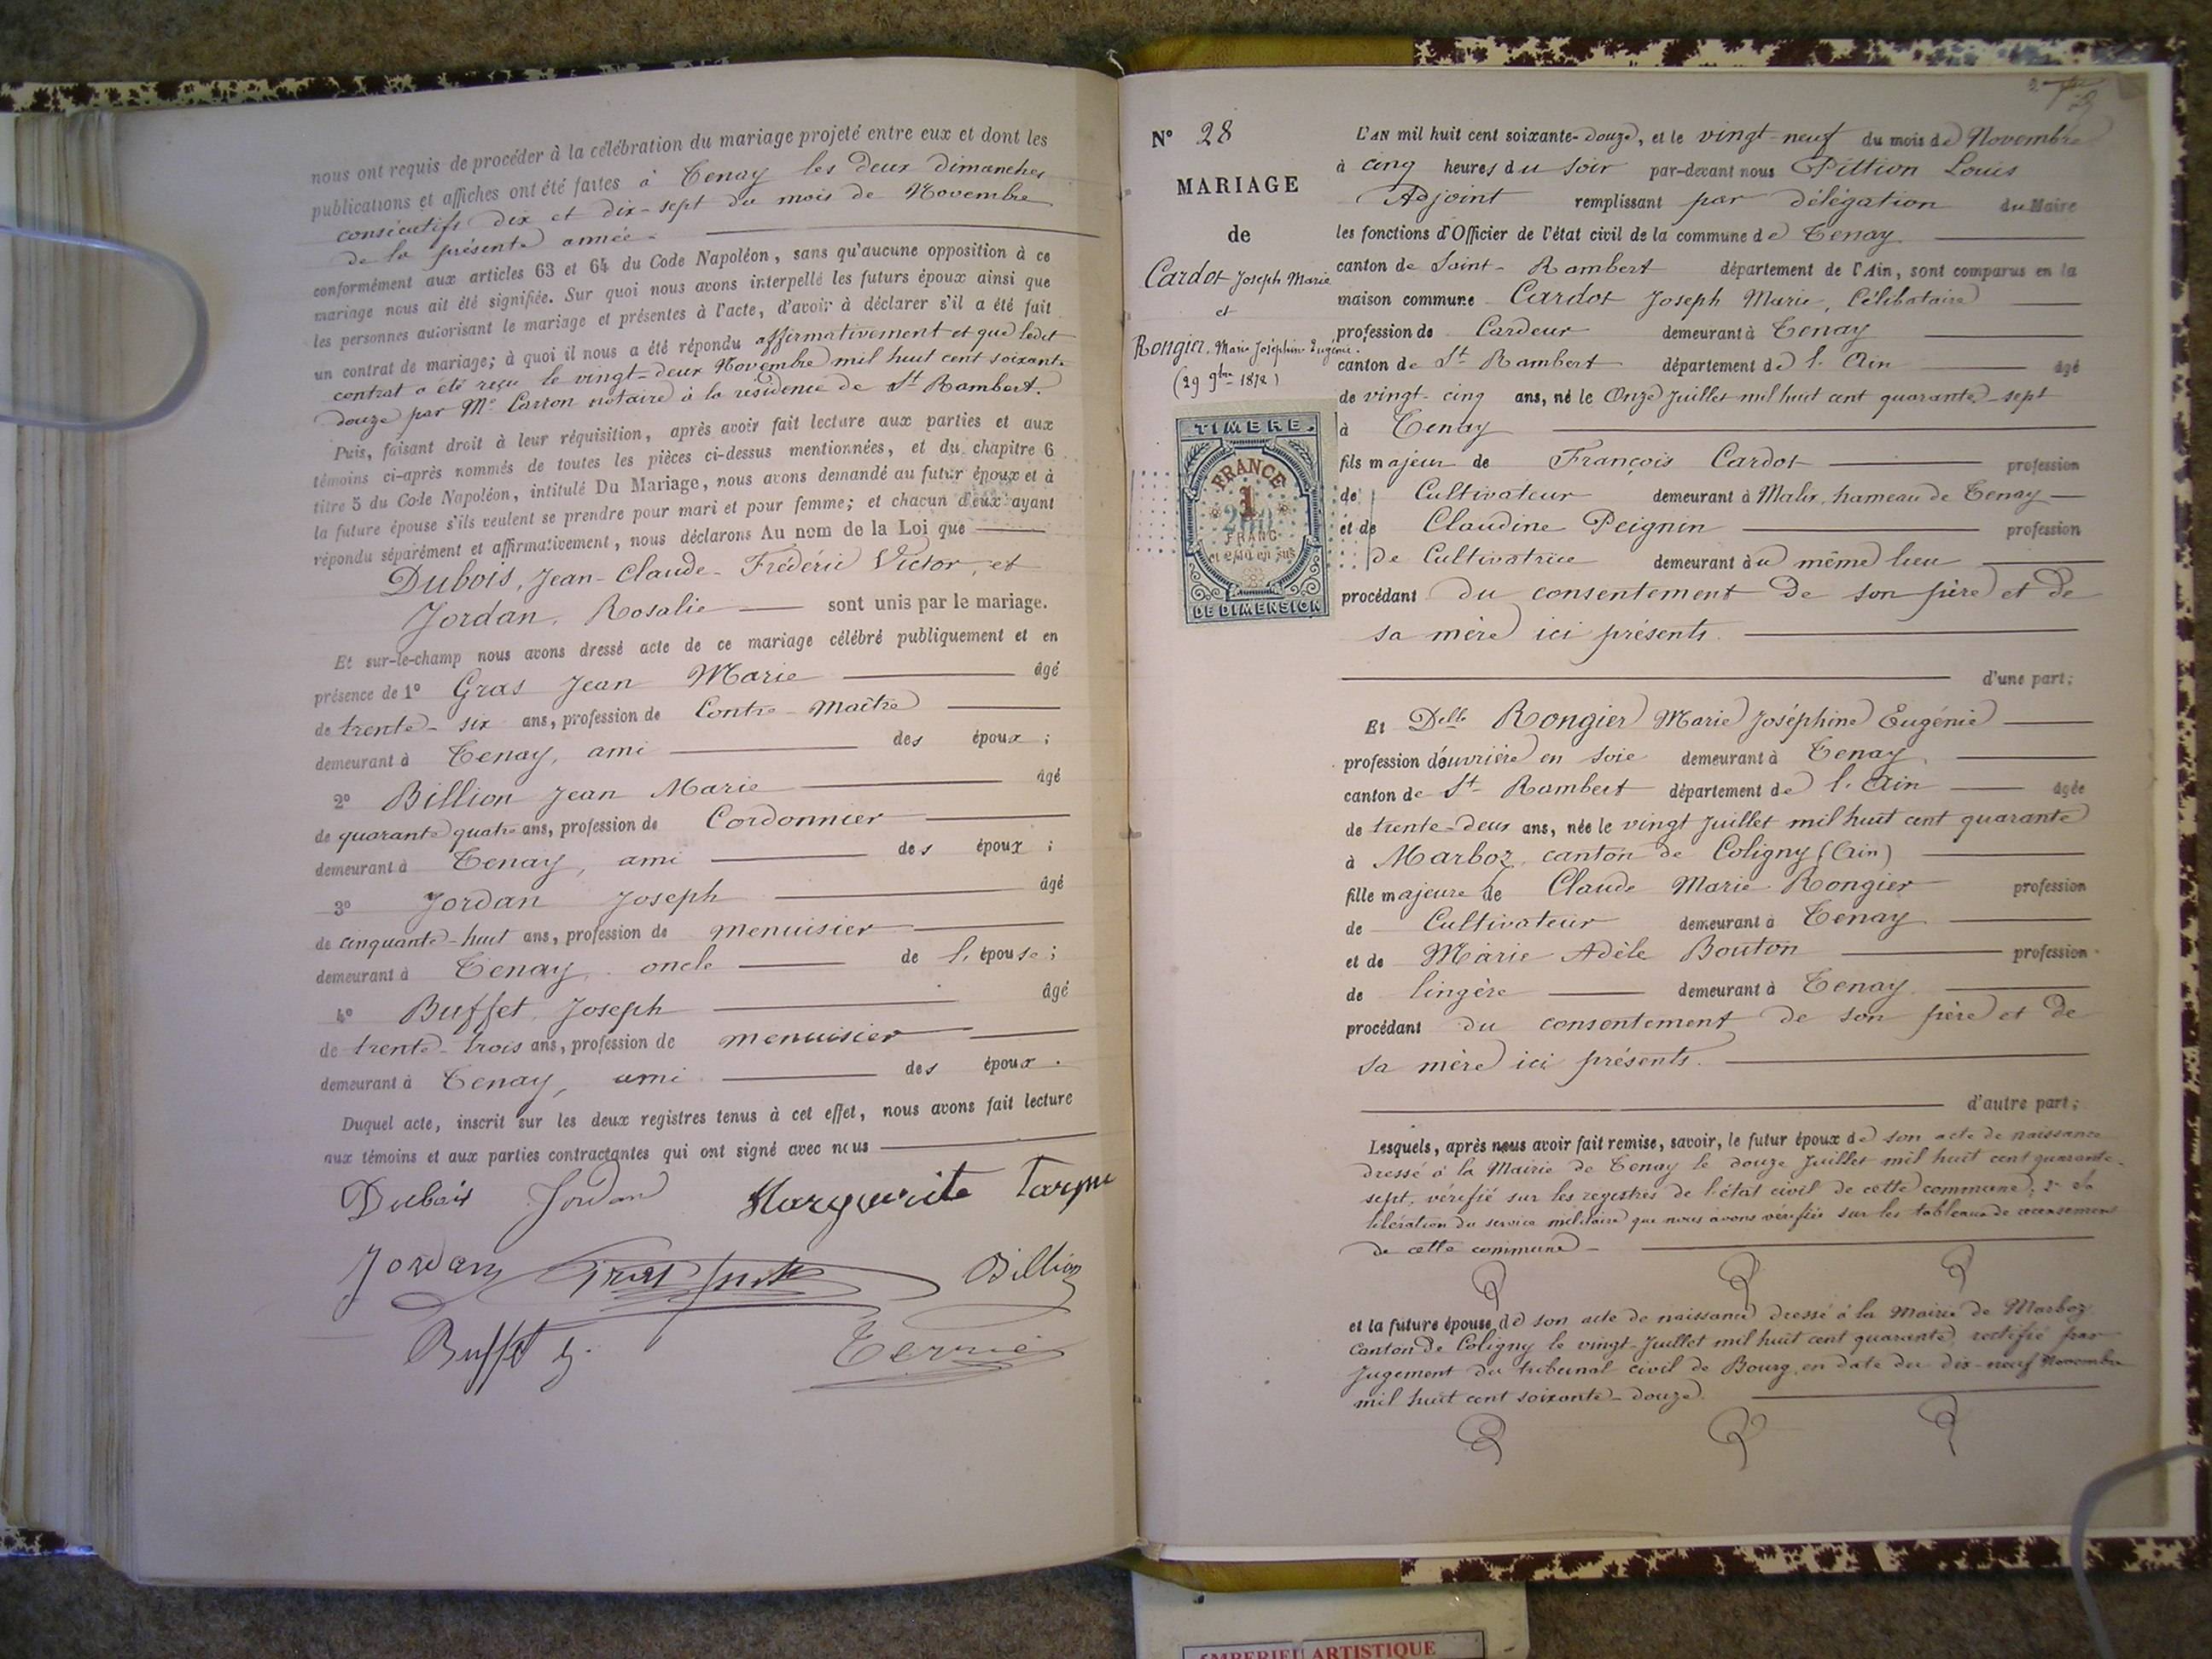 nous ont requis de procéder à la célébration du mariage projeté entre eux et dont les
publications et affiches ont été faites à Tenay les deux dimanches
consécutifs dix et dix-sept du mois de Novembre
de la présente année.
conformément aux articles 63 et 64 du Code Napoléon, sans qu'aucune opposition à ce
mariage nous ait été signifiée. Sur quoi nous avons interpellé les futurs époux ainsi que
les personnes autorisant le mariage et présentes à l'acte, d'avoir à déclarer s'il a été fait
un contrat de mariage; à quoi il nous a été répondu affirmativement et que ledit
contrat a été reçu le vingt-deux Novembre mil huit cent soixante
douze par Me Carron notaire à la résidence de St Rambert.
Puis, faisant droit à leur réquisition, après avoir fait lecture aux parties et aux
témoins ci-après nommés de toutes les pièces ci-dessus mentionnées, et du chapitre 6
titre 5 du Code Napoléon, intitulé Du Mariage, nous avons demandé au futur époux et à
la future épouse s'ils veulent se prendre pour mari et pour femme; et chacun d'eux ayant
répondu séparément et affirmativement, nous déclarons Au nom de la Loi que
Dubois, Jean-Claude-Frédéric Victor, et
Jordan, Rosalie sont unis par le mariage.
Et sur-le-champ nous avons dressé acte de ce mariage célébré publiquement et en
présence de 1° Gras Jean Marie âgé
de trente-six ans, profession de Contre-Maître
demeurant à Tenay, ami des époux;
2° Billion Jean Marie âgé
de quarante quatre ans, profession de Cordonnier
demeurant à Tenay, ami des époux;
3° Jordan Joseph âgé
de cinquante-huit ans, profession de menuisier
demeurant à Tenay, oncle de l'épouse;
4° Buffet Joseph âgé
de trente-trois ans, profession de menuisier
demeurant à Tenay, ami des époux.
Duquel acte, inscrit sur les deux registres tenus à cet effet, nous avons fait lecture
aux témoins et aux parties contractantes qui ont signé avec nous
Dubois Jordan Marguerite
Jordan Billion
Buffet j.
N° 28
MARIAGE
de
Cardot Joseph Marie
et
Rongier, Marie Joséphine Eugénie.
(29 9bre 1872)
TIMBRE.
FRANCE
1
FRANC
et 2/10 en sus
DE DIMENSION
L'AN mil huit cent soixante-douze, et le vingt-neuf du mois de Novembre
à cinq heures du soir par-devant nous Pittion Louis
Adjoint remplissant par délégation du Maire
les fonctions d'Officier de l'état civil de la commune de Tenay
canton de Saint-Rambert département de l'Ain, sont comparus en la
maison commune Cardot Joseph Marie, Célibataire
profession de Cardeur demeurant à Tenay
canton de St Rambert département de l'Ain âgé
de vingt-cinq ans, né le Onze Juillet mil huit cent quarante-sept
à Tenay
fils majeur de François Cardot profession
de Cultivateur demeurant à Malix, hameau de Tenay
et de Claudine Peignin profession
de Cultivatrice demeurant au même lieu
procédant du consentement de son père et de
sa mère ici présents.
d'une part;
Et Delle Rongier Marie Joséphine Eugénie
profession d'ouvrière en soie demeurant à Tenay
canton de St Rambert département de l'Ain âgée
de trente-deux ans, née le vingt Juillet mil huit cent quarante
à Marboz canton de Coligny (Ain)
fille majeure de Claude Marie Rongier profession
de Cultivateur demeurant à Tenay
et de Marie Adèle Bouton profession
de lingère demeurant à Tenay
procédant du consentement de son père et de
sa mère ici présents.
d'autre part;
Lesquels, après nous avoir fait remise, savoir, le futur époux de son acte de naissance
dressé à la Mairie de Tenay le douze Juillet mil huit cent quarante-
sept, vérifié sur les registres de l'état civil de cette commune; 2° de
libération du service militaire que nous avons vérifiée sur les tableaux de recensement
de cette commune
et la future épouse de son acte de naissance dressé à la Mairie de Marboz
Canton de Coligny le vingt-Juillet mil huit cent quarante, rectifié par
Jugement du tribunal civil de Bourg, en date du dix-neuf Novembre
mil huit cent soixante-douze.
ARTISTIQUE